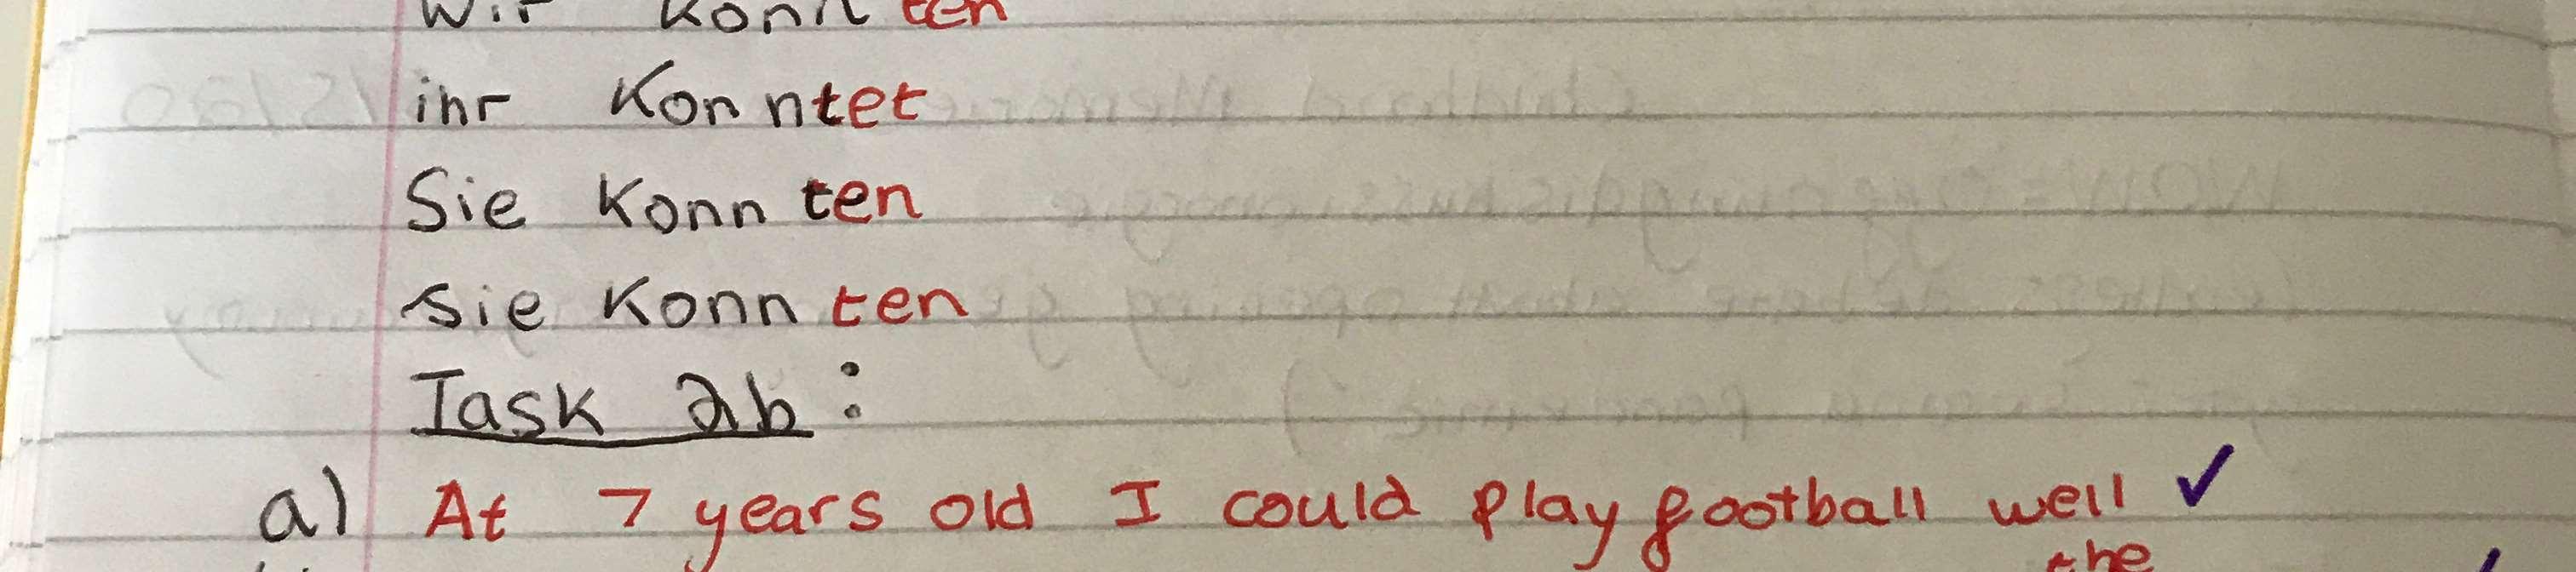 wir konnten
ihr konntet
Sie konnten
sie konnten
Task 2b:
a) At 7 years old I could play football well ✓
the